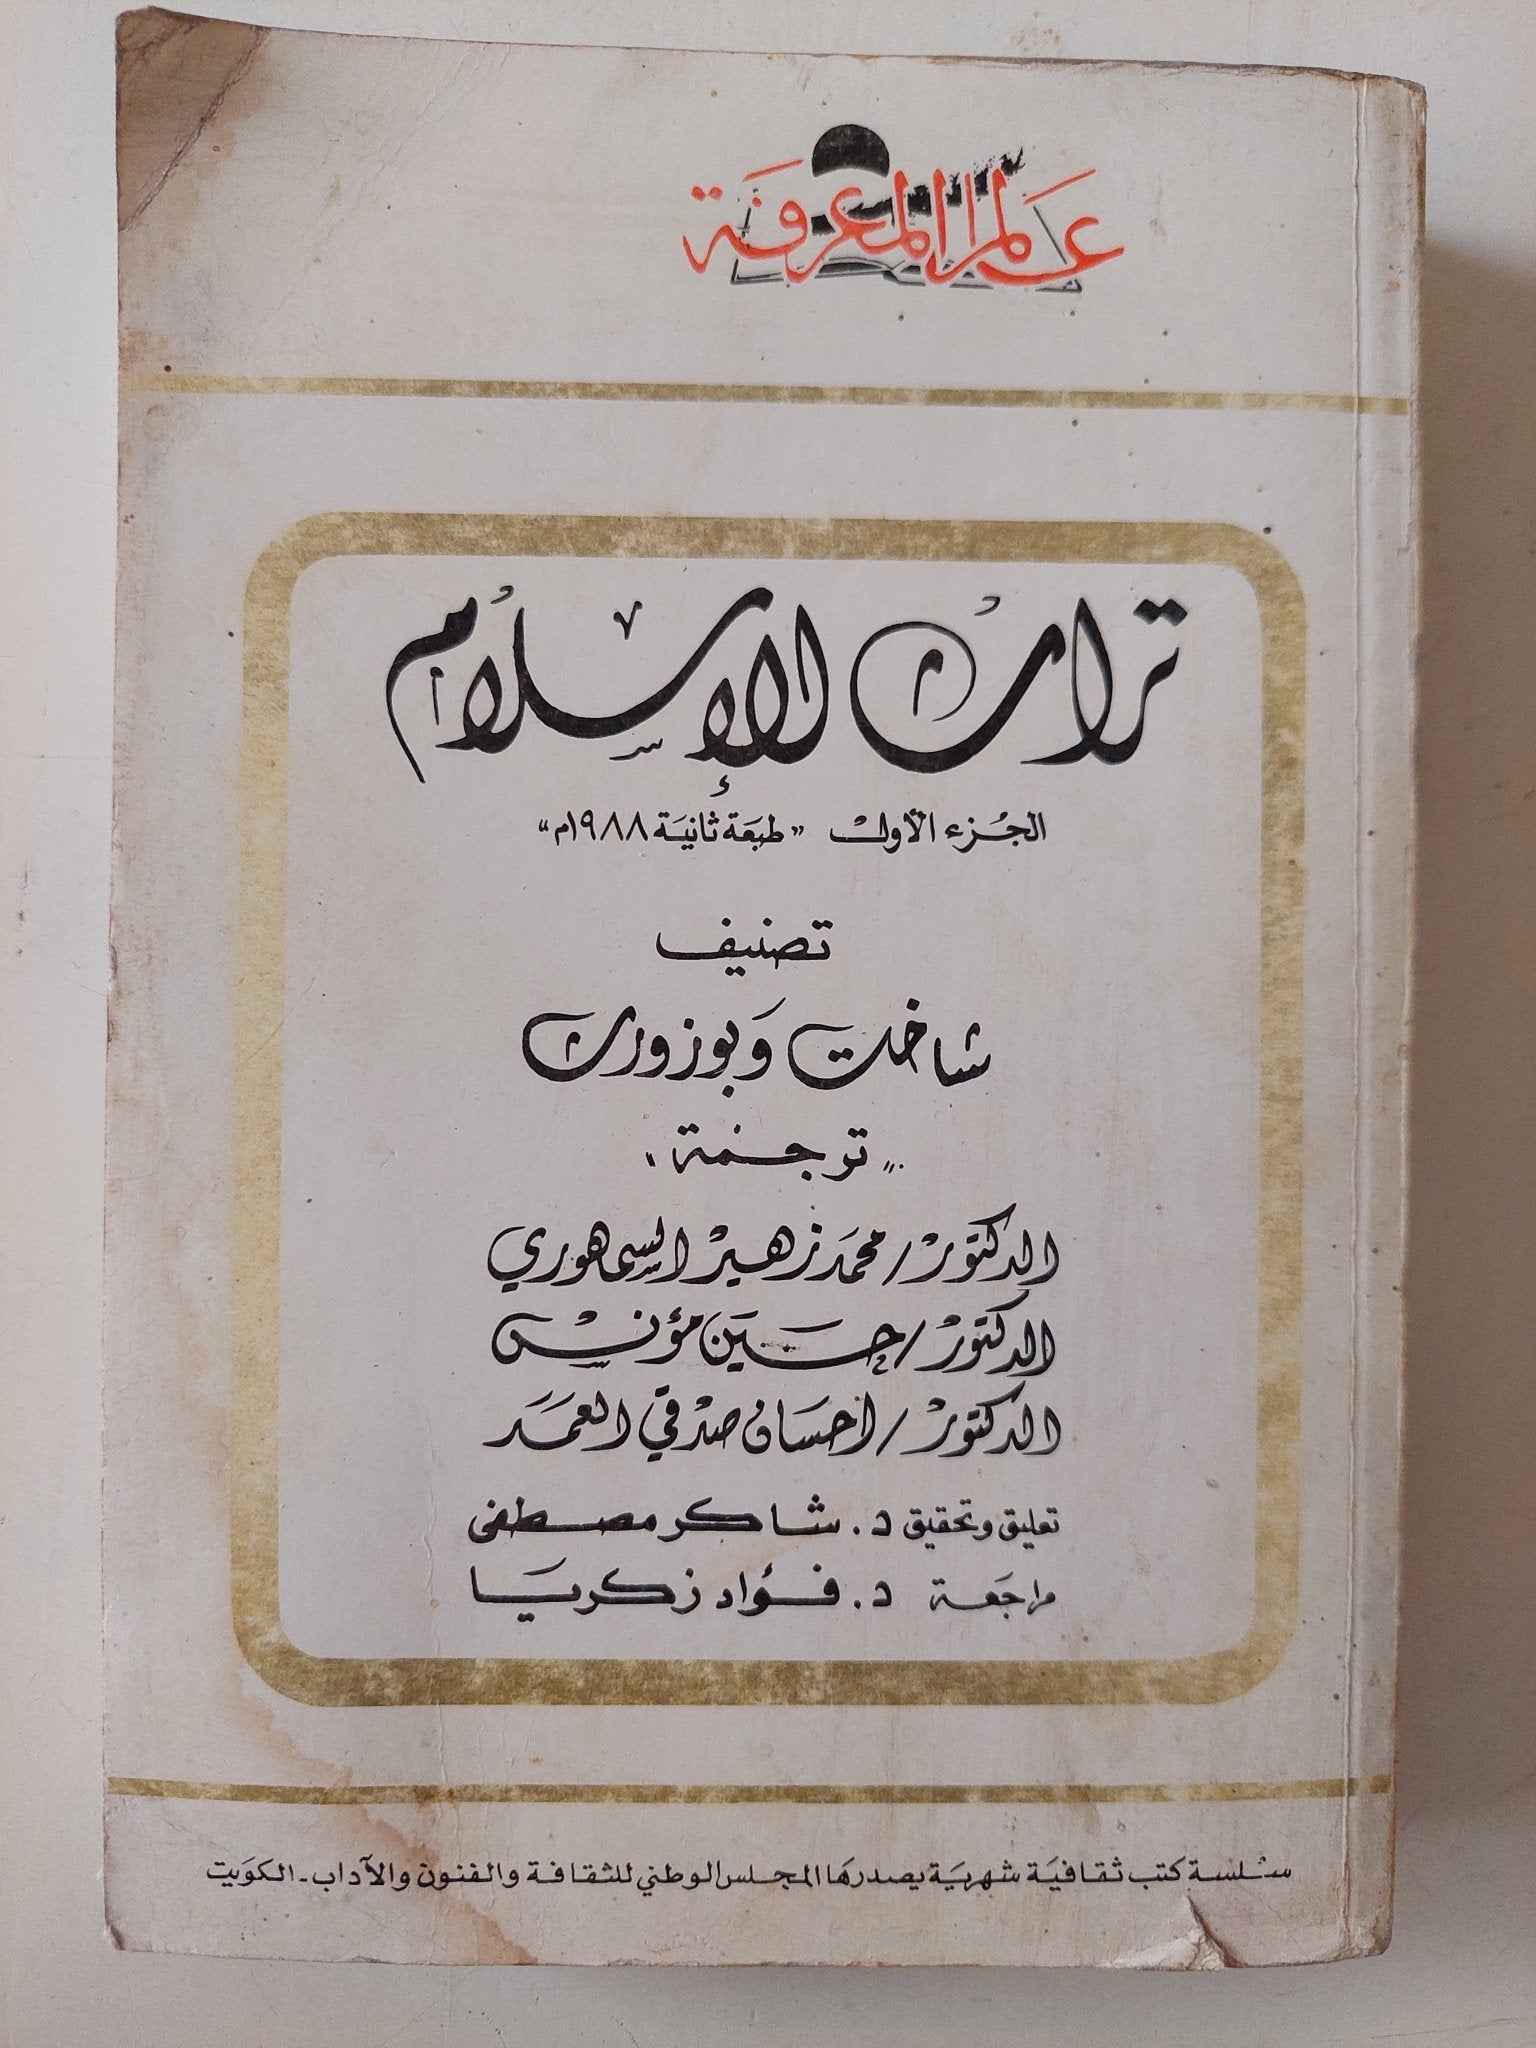 عالم المعرفة
تراث الإسلام
الجزء الأول "طبعة ثانية ١٩٨٨م"
تصنيف
شاخت وبوزورث
"ترجمة"
الدكتور / محمد زهير السمهوري
الدكتور / حسين مؤنس
الدكتور / احسان صدقي العمد
تعليق وتحقيق د. شاكر مصطفى
مراجعة د. فؤاد زكريا
سلسلة كتب ثقافية شهرية يصدرها المجلس الوطني للثقافة والفنون والآداب - الكويت